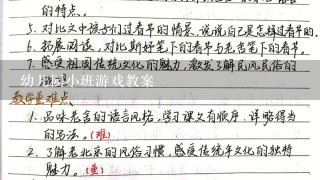 的特点。
5、对比文中孩子们过春节的情景，说说自己是怎样过春节的。
6、拓展阅读，对比斯好笔下的春节与老舍笔下的春节。
7、感受祖国传统文化的魅力，激发了解民风民俗的
幼儿园小班游戏教案
教学重难点
1、品味老舍的语言风格，学习课文有顺序、详略得当
的写法。（难）
2、了解老北京的风俗习惯，感受传统年文化的独特
魅力。（重）